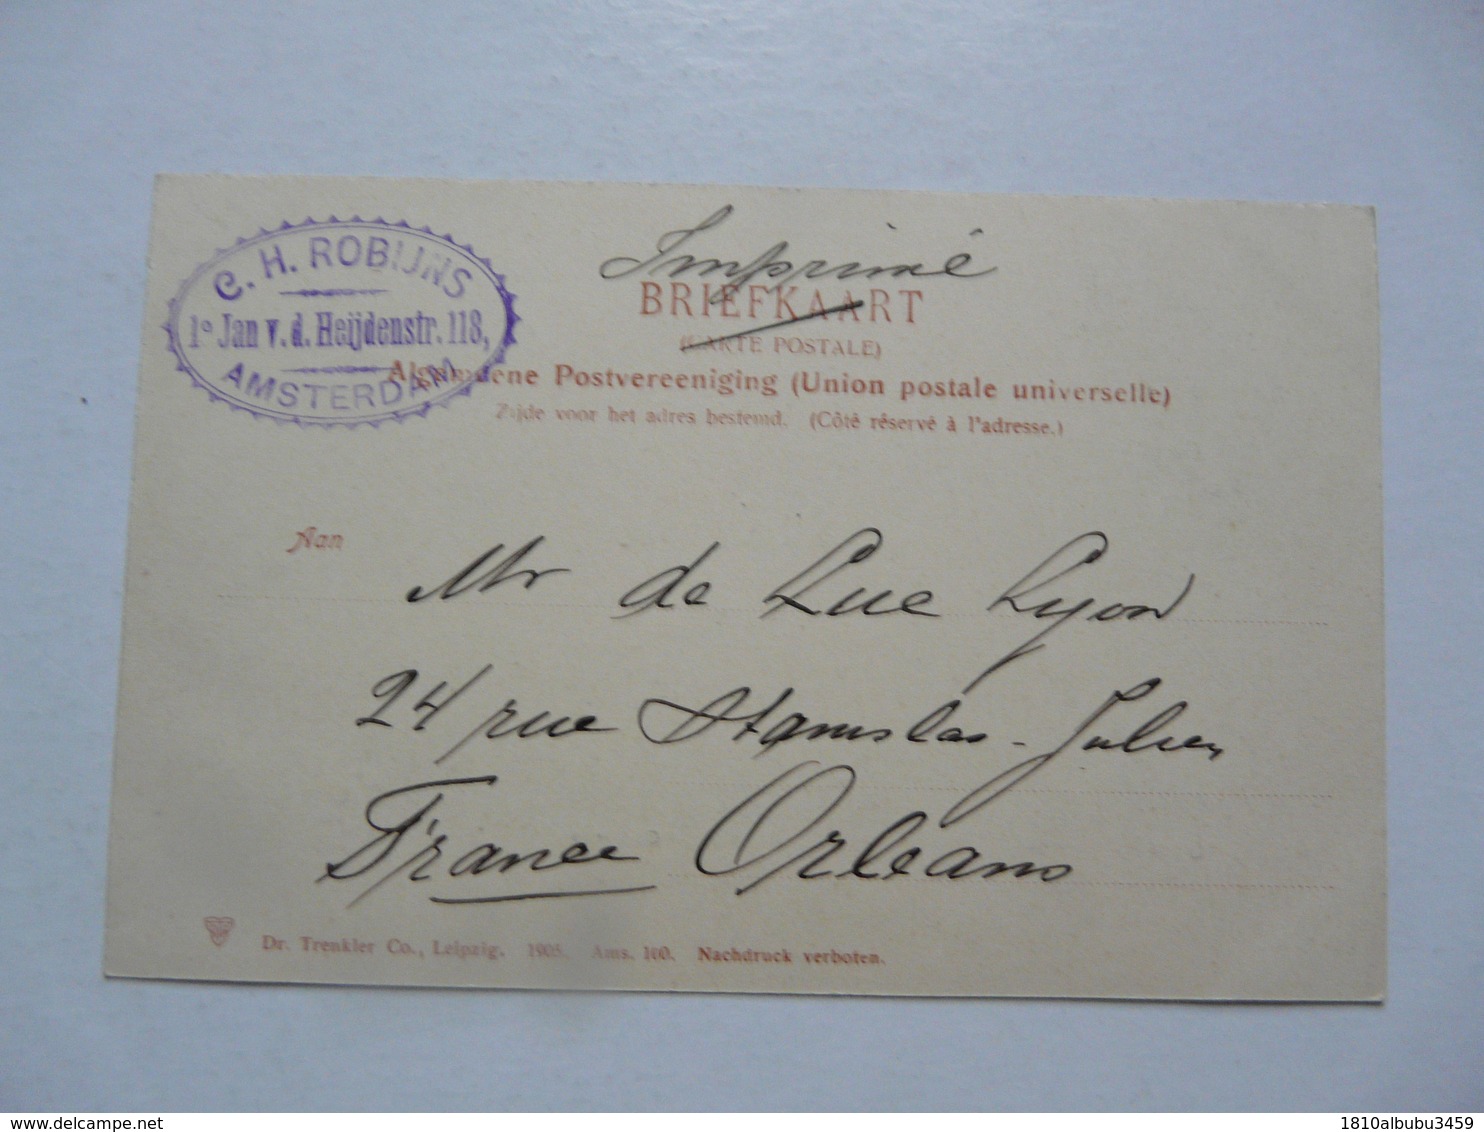 C. H. ROBIJNS
1º Jan v. d. Heijdenstr. 118,
AMSTERDAM
Imprimé
BRIEFKAART
(CARTE POSTALE)
Algemeene Postvereeniging (Union postale universelle)
Zijde voor het adres bestemd. (Côté réservé à l'adresse.)
Aan
Mr de Luc Lyon
24 rue Stanislas-Julien
France Orleans
Dr. Trenkler Co., Leipzig. 1905. Ams. 100. Nachdruck verboten.
delcampe.net
1810albubu3459